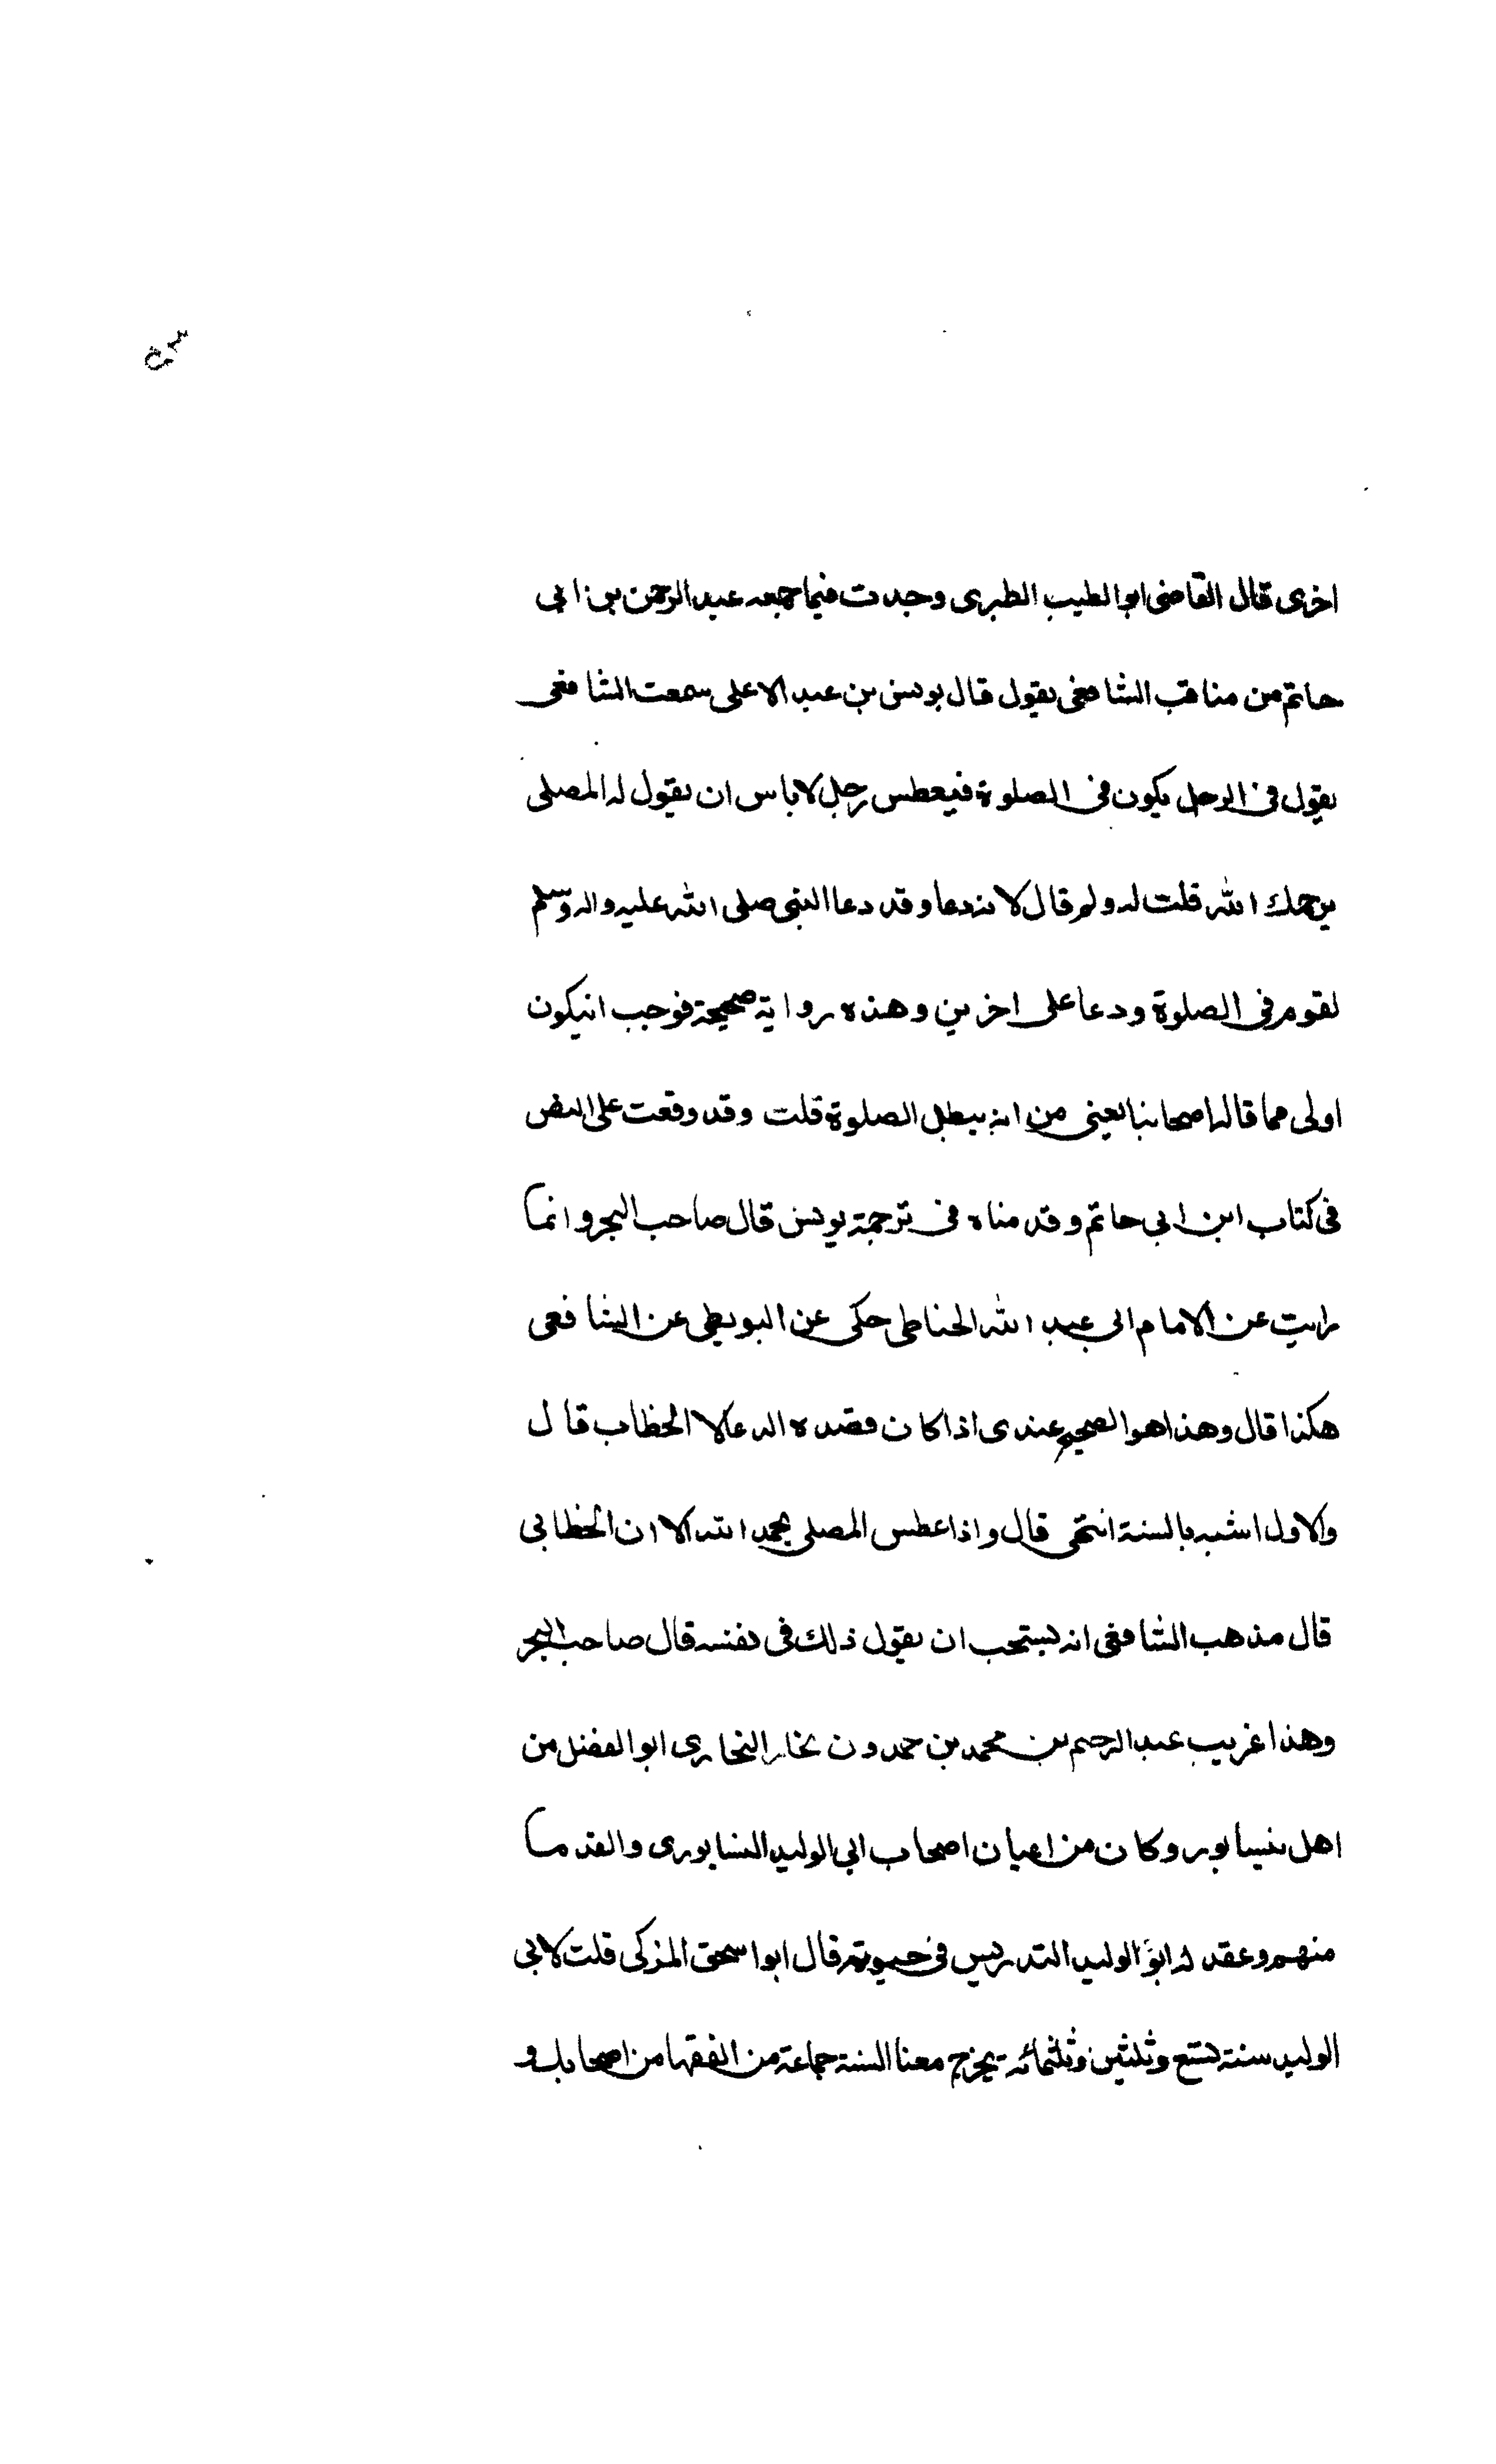 اخرى قال القاضى ابو الطيب الطبرى وجدت فيما جمعه عبد الرحمن بن ابى
حاتم من مناقب الشافعى يقول قال يونس بن عبد الاعلى سمعت الشافعى
يقول فى الرجل يكون فى الصلوة فيعطس رجل لا باس ان يقول له المصلى
يرحمك الله قلت له ولم قال لانه دعا وقد دعا النبى صلى الله عليه واله وسلم
لقوم فى الصلوة ودعا على اخرين وهذه رواية صحيحة فوجب انيكون
اولى مما قاله اصحابنا يعنى من انه يبطل الصلوة قلت وقد وقعت على النص
فى كتاب ابن ابى حاتم وقدمناه فى ترجمة يونس قال صاحب البحر وانما
رايت عن الامام ابى عبد الله الحناطى حكى عن البويطى عن الشافعى
هكذا قال وهذا هو الصحيح عندى اذا كان قصده الدعا لا الخطاب قال
والاول اشبه بالسنة انتهى قال واذا عطس المصلى يحمد الله الا ان الخطابى
قال مذهب الشافعى انه يستحب ان يقول ذلك فى نفسه قال صاحب البحر
وهذا غريب عبد الرحيم بن محمد بن حمدون بخار البخارى ابو الفضل من
اهل نيسابور وكان من اعيان اصحاب ابى الوليد النيسابورى والقدما
منهم وعقد له ابو الوليد التدريس فى حيوته قال ابو اسحق المزكى قلت لابى
الوليد سنة تسع وثلثين وثلثمائة يخرج معنا السنة جماعة من الفقها من اصحابك و